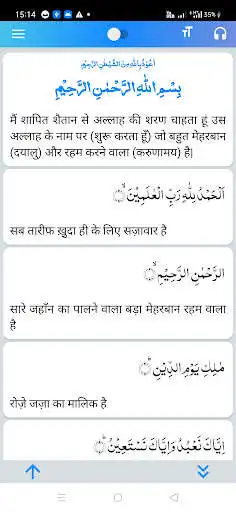 15:14
35%
TT
اَعُوْذُ بِاللّٰهِ مِنَ الشَّيْطٰنِ الرَّجِيْمِ
بِسْمِ اللّٰهِ الرَّحْمٰنِ الرَّحِيْمِ
मैं शापित शैतान से अल्लाह की शरण चाहता हूं उस
अल्लाह के नाम पर (शुरू करता हूँ) जो बहुत मेहरबान
(दयालु) और रहम करने वाला (करुणामय) है|
اَلْحَمْدُ لِلّٰهِ رَبِّ الْعٰلَمِيْنَ ۙ
सब तारीफ ख़ुदा ही के लिए सज़ावार है
الرَّحْمٰنِ الرَّحِيْمِ ۙ
सारे जहाँन का पालने वाला बड़ा मेहरबान रहम वाला
है
مٰلِكِ يَوْمِ الدِّيْنِ ؕ
रोज़े जज़ा का मालिक है
اِيَّاكَ نَعْبُدُ وَاِيَّاكَ نَسْتَعِيْنُ ؕ